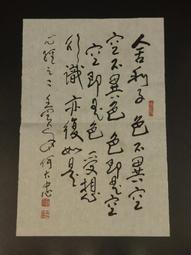 舍利子色不異空
空不異色色即是空
空即是色受想
行識亦復如是
心經之